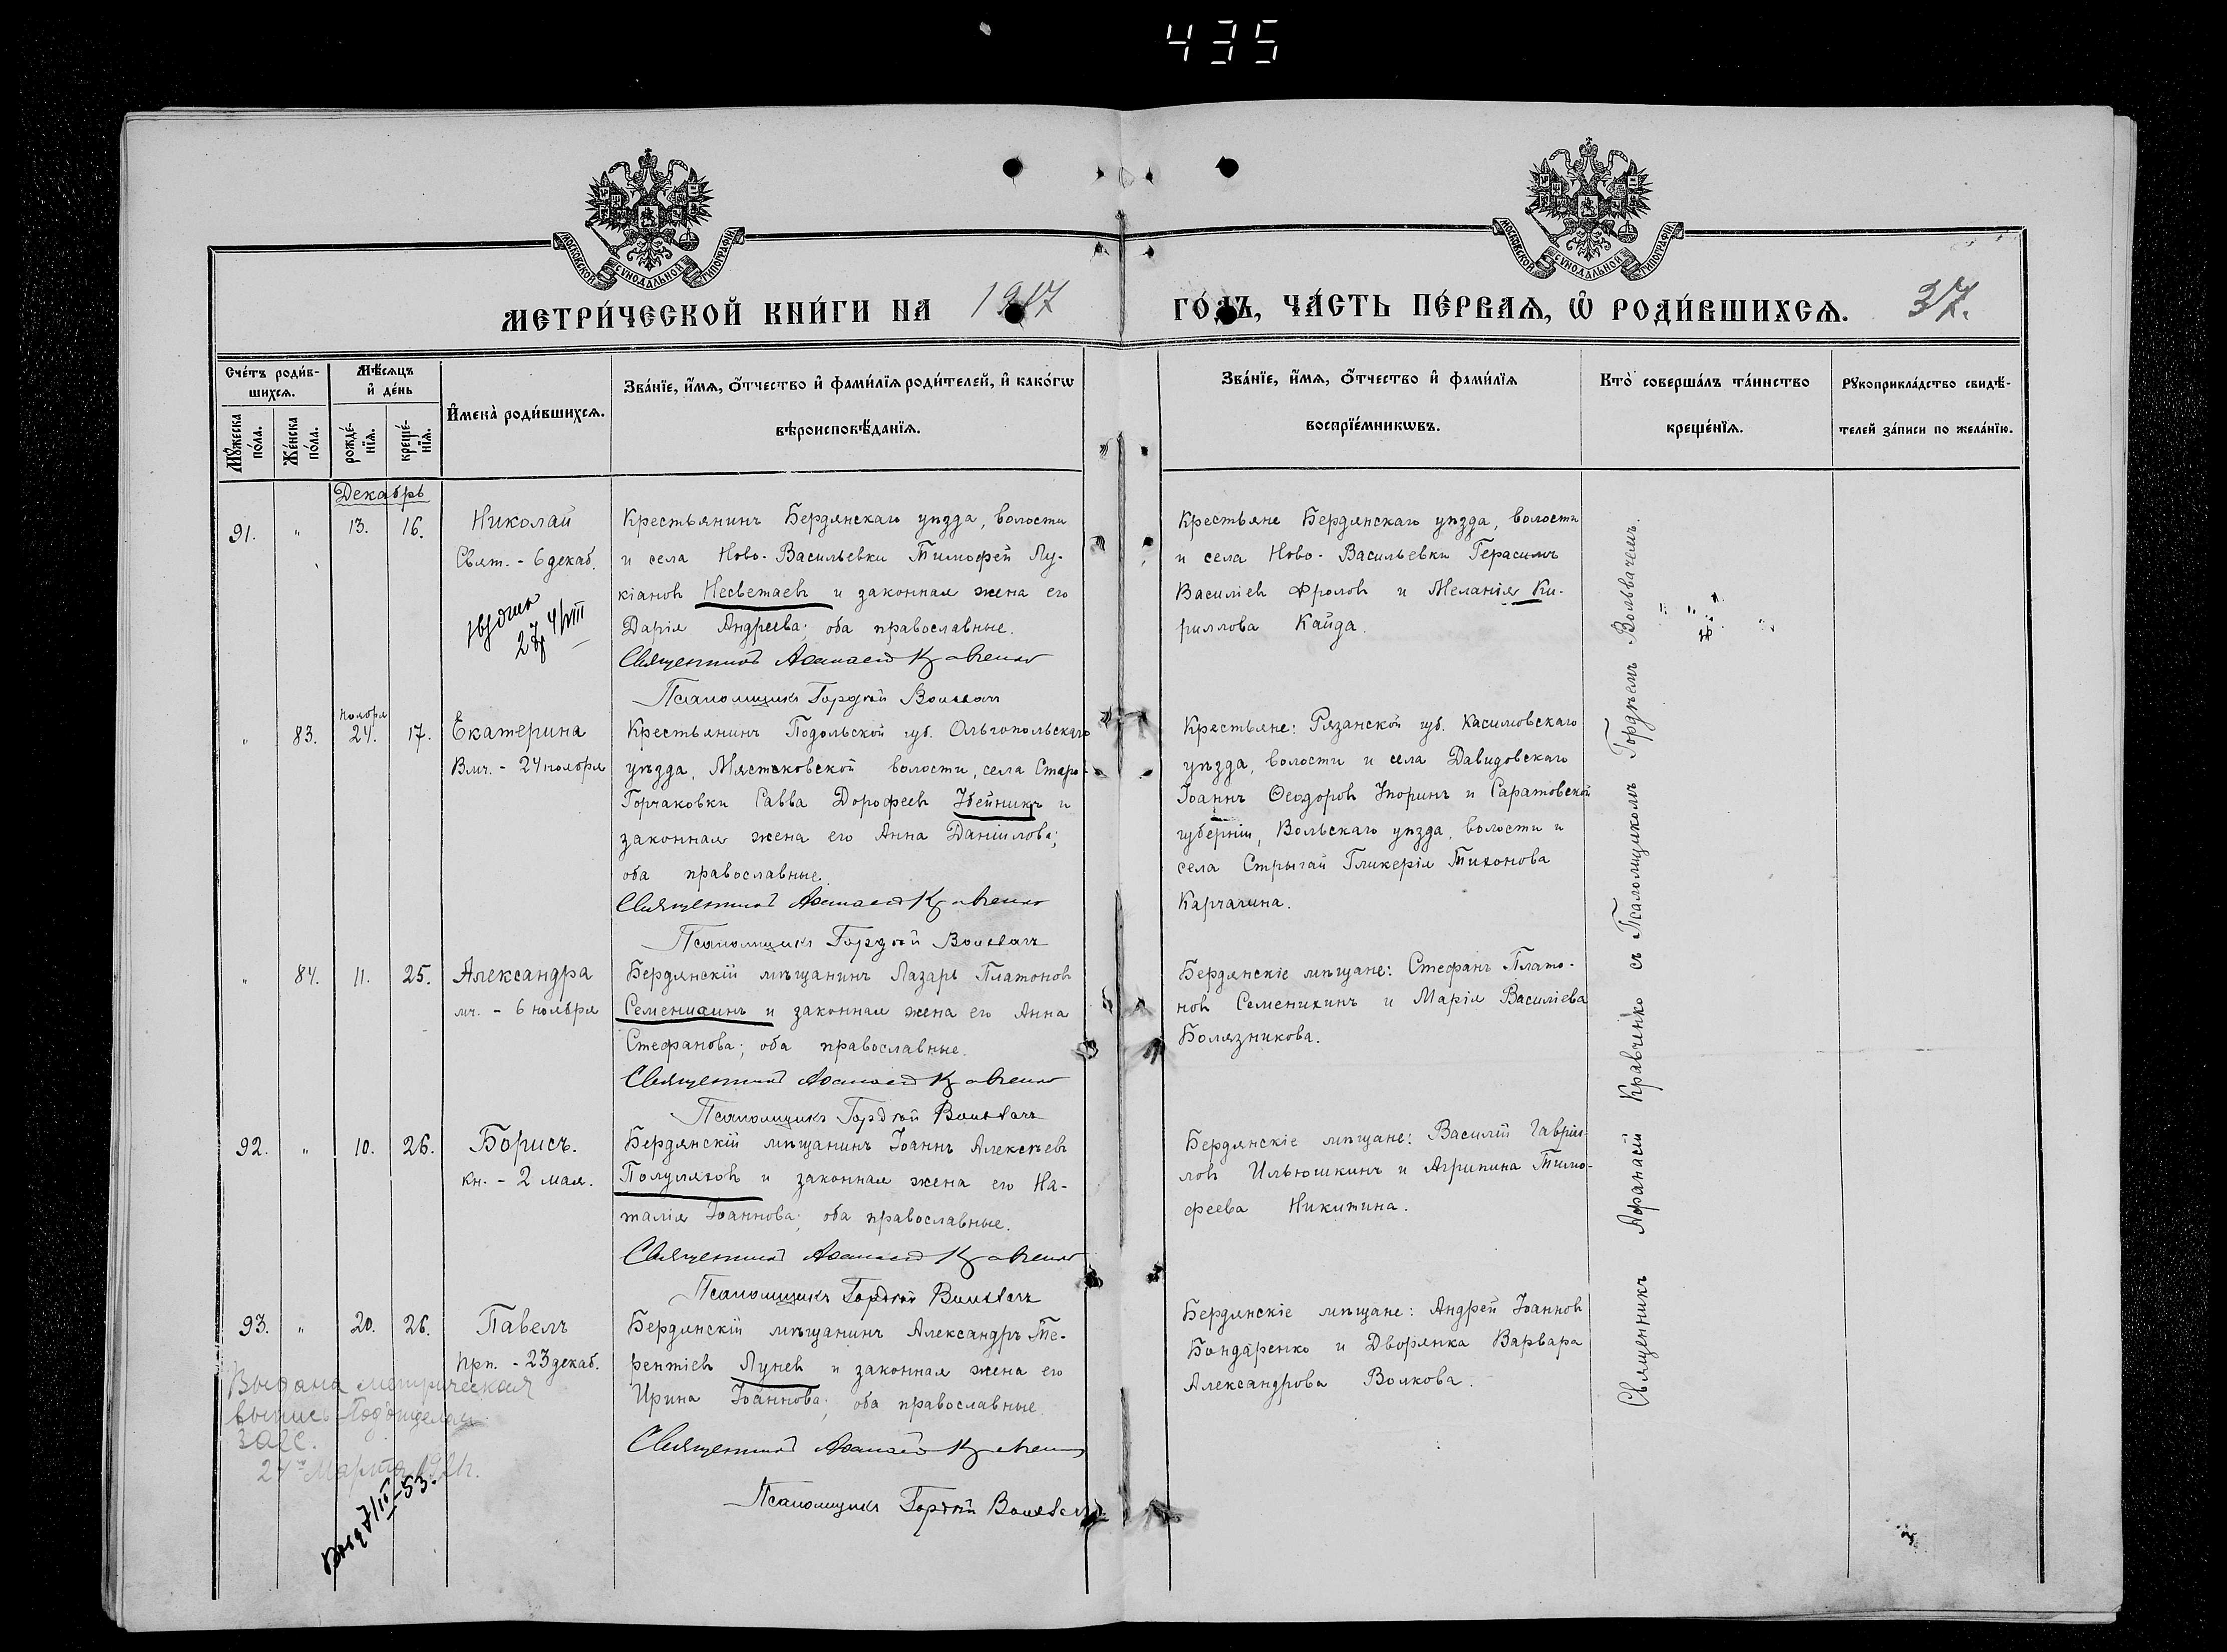 435
МОСКОВСКОЙ СУНОДАЛЬНОЙ ТИПОГРАФІИ
МОСКОВСКОЙ СУНОДАЛЬНОЙ ТИПОГРАФІИ
МЕТРИ́ЧЕСКОЙ КНИ́ГИ НА 1917 ГО́ДЪ, ЧА́СТЬ ПЕ́РВАѦ, Ѽ РОДИ́ВШИХСѦ. 37.
Сче́тъ роди́в-
шихсѧ.
Мꙋ́жеска по́ла.
Же́нска по́ла.
Мѣ́сѧцъ
и҆ де́нь
рожде́-
нїѧ.
креще́-
нїѧ.
И҆мена̀ роди́вшихсѧ.
Зва́нїе, и҆́мѧ, ѻ҆́тчество и҆ фами́лїѧ роди́телей, и҆ како́гѡ
вѣроисповѣ́данїѧ.
Зва́нїе, и҆́мѧ, ѻ҆́тчество и҆ фами́лїѧ
воспрїе́мникѡвъ.
Кто̀ соверша́лъ та́инство
креще́нїѧ.
Рꙋкоприкла́дство свидѣ́-
телей за́писи по жела́нїю.
Декабрь
91. " 13. 16. Николай
Свят. - 6 декаб.
Крестьянинъ Бердянскаго уѣзда, волости
и села Ново-Васильевки Тимофей Лу-
кіановъ Несветаевъ и законная жена его
Дарія Андреева; оба православные.
Священникъ Аѳанасій Кравченко
Псаломщикъ Гордѣй Вольвачъ
Крестьяне Бердянскаго уѣзда, волости
и села Ново-Васильевки Герасимъ
Василіевъ Фроловъ и Меланія Ки-
риллова Кайда.
" 83. ноября 24. 17. Екатерина
Вмч. - 24 ноября
Крестьянинъ Подольской губ. Ольгопольскаго
уѣзда, Мястковской волости, села Старо-
Горчаковки Савва Дорофеевъ Убейникъ и
законная жена его Анна Даніилова;
оба православные.
Священникъ Аѳанасій Кравченко
Псаломщикъ Гордѣй Вольвачъ
Крестьяне: Рязанской губ. Касимовскаго
уѣзда, волости и села Давидовскаго
Іоаннъ Ѳеодоровъ Умринъ и Саратовской
губерніи, Вольскаго уѣзда, волости и
села Стрыгай Гликерія Тихонова
Карчагина.
" 84. 11. 25. Александра
мч. - 6 ноября
Бердянскій мѣщанинъ Лазарь Платоновъ
Семенихинъ и законная жена его Анна
Стефанова; оба православные.
Священникъ Аѳанасій Кравченко
Псаломщикъ Гордѣй Вольвачъ
Бердянскіе мѣщане: Стефанъ Плато-
новъ Семенихинъ и Марія Василіева
Болязникова.
92. " 10. 26. Борисъ.
кн. - 2 мая.
Бердянскій мѣщанинъ Іоаннъ Алексѣевъ
Полуляховъ и законная жена его На-
талія Іоаннова; оба православные.
Священникъ Аѳанасій Кравченко
Псаломщикъ Гордѣй Вольвачъ
Бердянскіе мѣщане: Василій Гавріи-
ловъ Ильюшкинъ и Агрипина Тимо-
феева Никитина.
93. " 20. 26. Павелъ
прп. - 23 декаб.
Бердянскій мѣщанинъ Александръ Те-
рентіевъ Лунев и законная жена его
Ирина Іоаннова; оба православные.
Священникъ Аѳанасій Кравченко
Псаломщикъ Гордѣй Вольвачъ
Бердянскіе мѣщане: Андрей Іоанновъ
Бондаренко и Дворянка Варвара
Александрова Волкова.
Священникъ Афанасій Кравченко съ Псаломщикомъ Гордѣемъ Вольвачемъ.
Выдана метрическая
выпись
загс.
24го Марта
Выд 7/II-53.